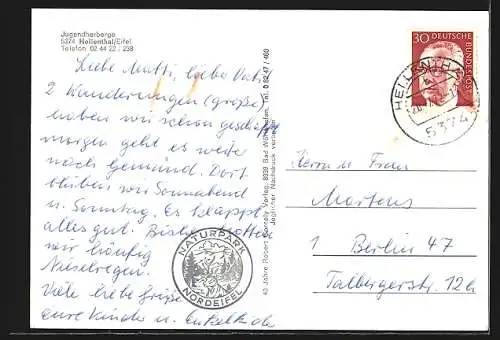 Jugendherberge
5374 Hellenthal/Eifel
Telefon 02 44 22 / 238
Liebe Mutti, lieber Vati!
2 Wanderungen (große)
haben wir schon geschafft
morgen geht es weiter
nach Gemünd. Dort
bleiben wir Sonnabend
u. Sonntag. Es klappt
alles gut. Bisher hatten
wir häufig
Nieselregen.
Viele liebe Grüße
eure Kinder u. Enkelkinder
NATURPARK
NORDEIFEL
40 Jahre Robert Verlag, 8939 Bad Wörishofen, Tel. 0 82 47 / 460
Jeglicher Nachdruck verboten
30 DEUTSCHE
BUNDESPOST
HELLENTHAL
5374
Herrn u. Frau
Martens
1 Berlin 47
Talbergerstr. 12h